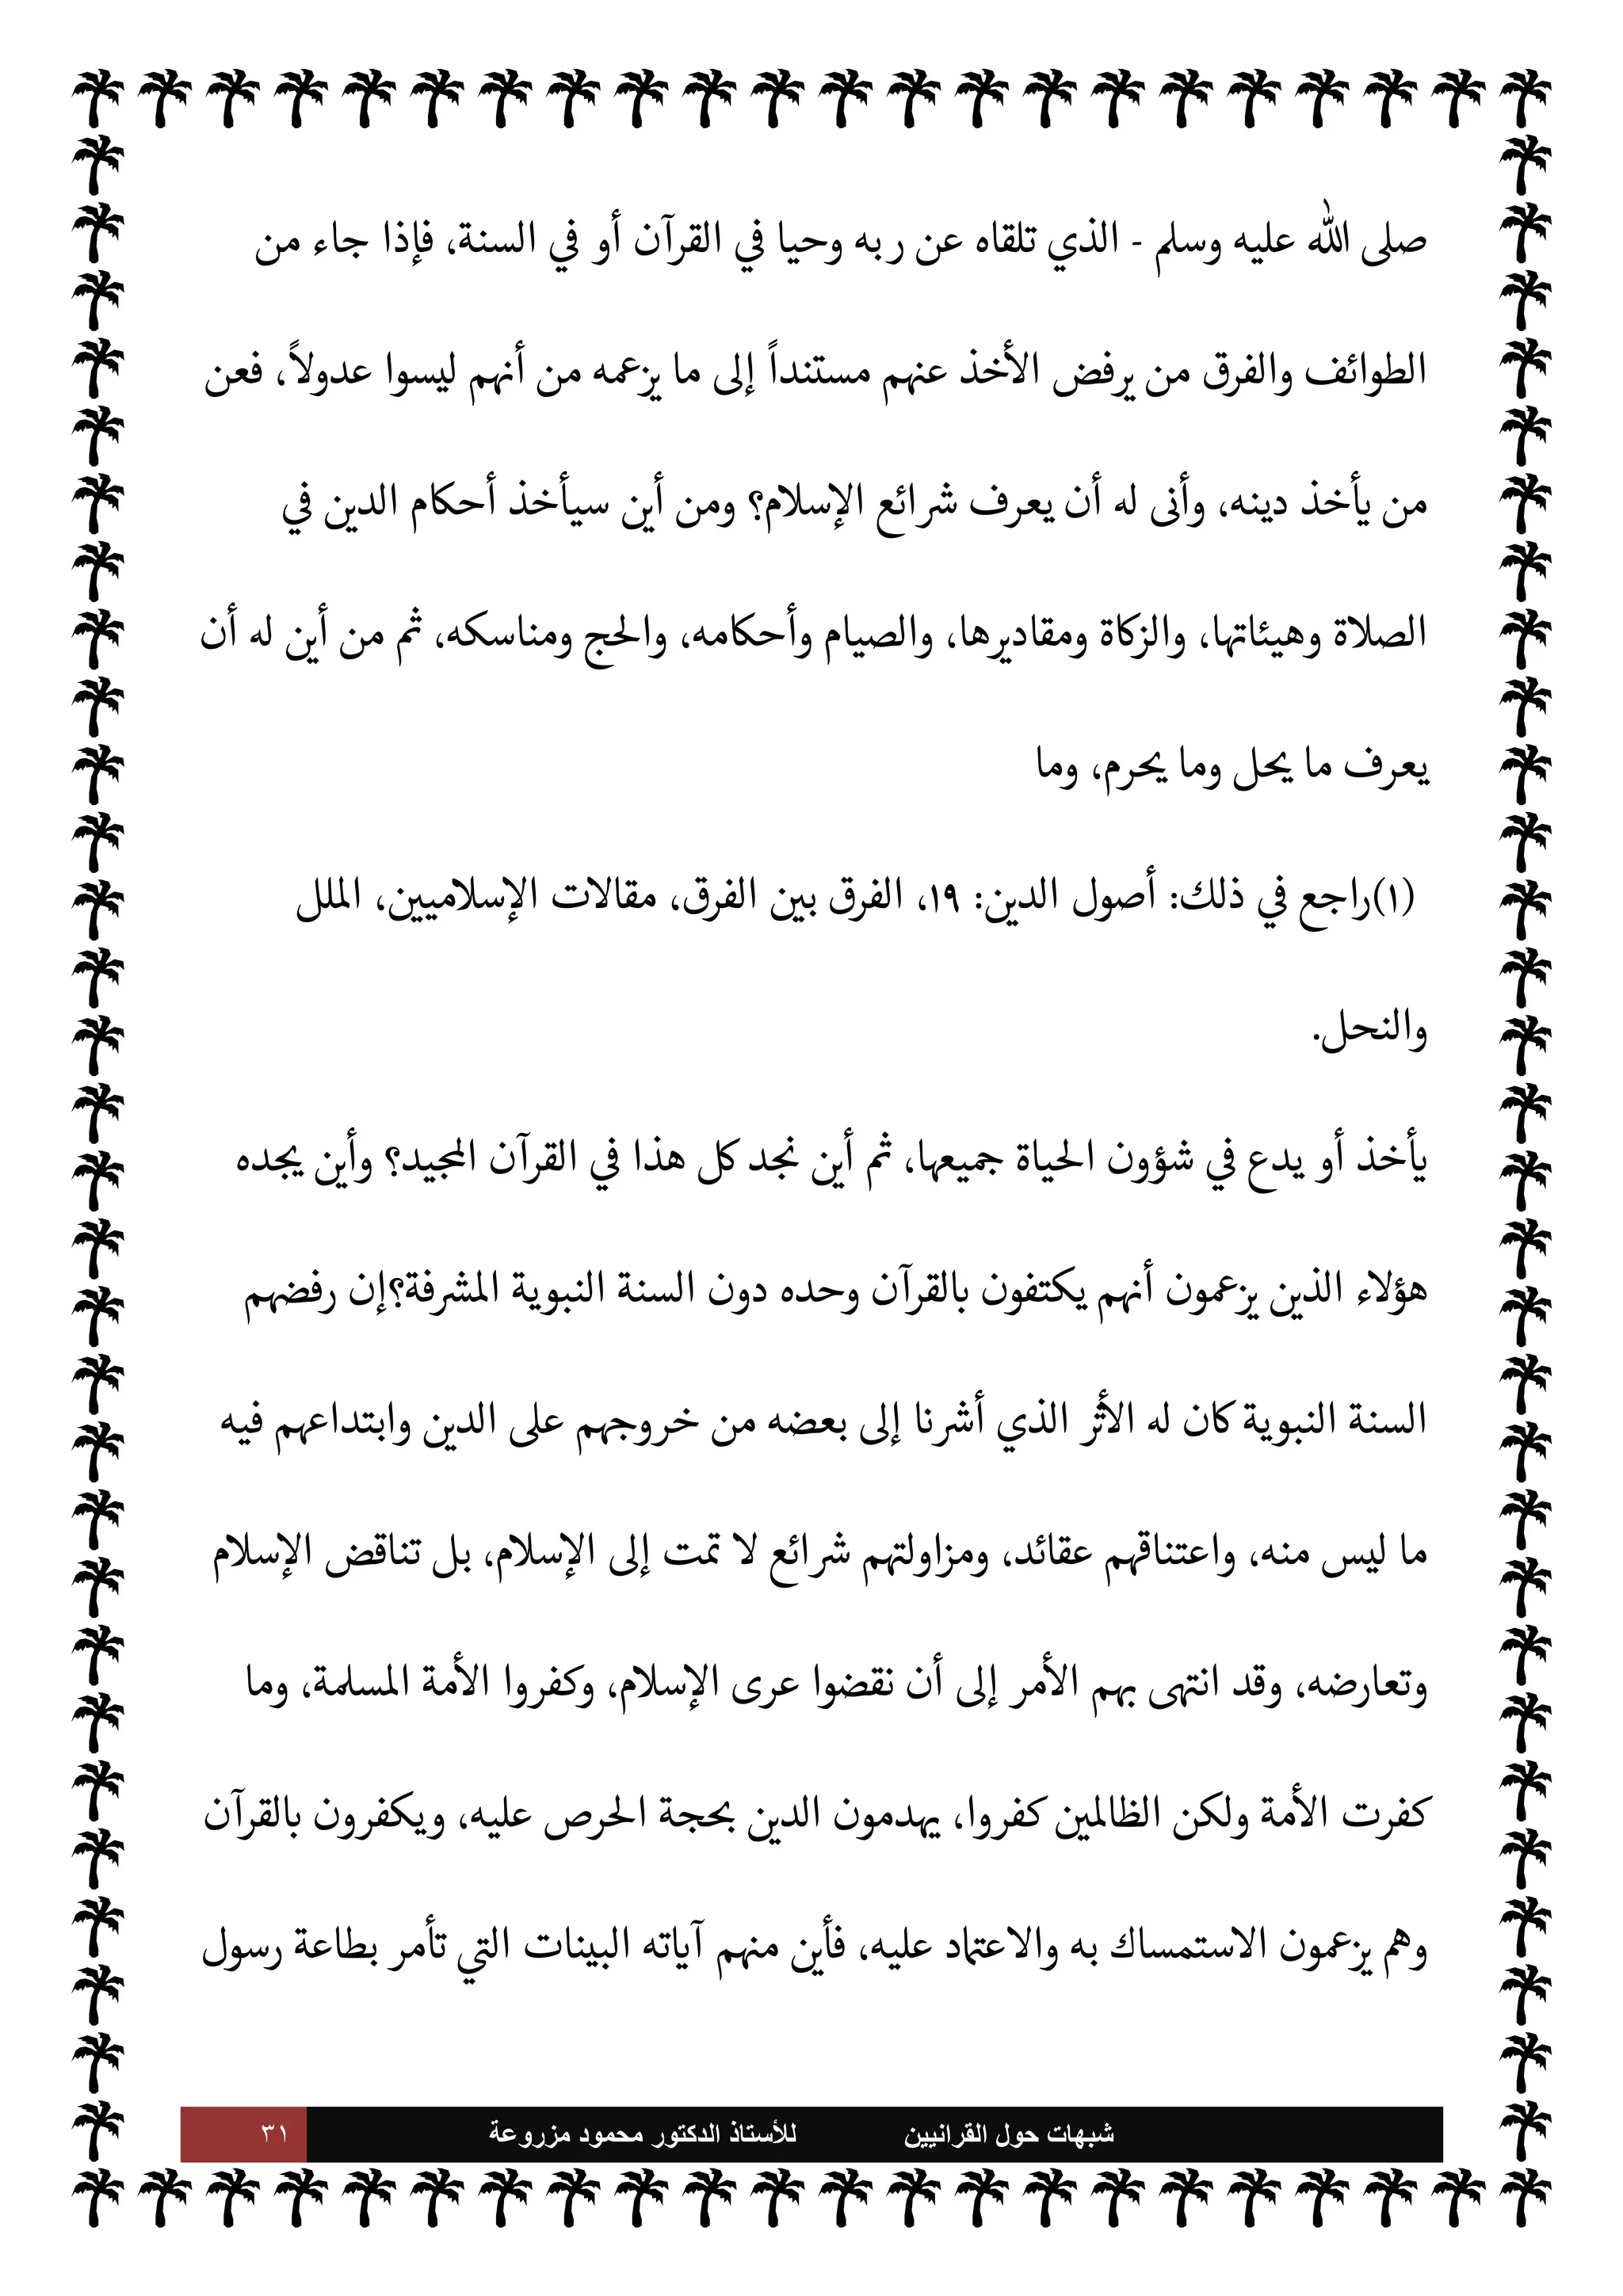 صلى الله عليه وسلم - الذي تلقاه عن ربه وحيا في القرآن أو في السنة، فإذا جاء من
الطوائف والفرق من يرفض الأخذ عنهم مستنداً إلى ما يزعمه من أنهم ليسوا عدولاً، فعن
من يأخذ دينه، وأنى له أن يعرف شرائع الإسلام؟ ومن أين سيأخذ أحكام الدين في
الصلاة وهيئاتها، والزكاة ومقاديرها، والصيام وأحكامه، والحج ومناسكه، ثم من أين له أن
يعرف ما يحل وما يحرم، وما
(١)راجع في ذلك: أصول الدين: ١٩، الفرق بين الفرق، مقالات الإسلاميين، الملل
والنحل.
يأخذ أو يدع في شؤون الحياة جميعها، ثم أين نجد كل هذا في القرآن المجيد؟ وأين يجده
هؤلاء الذين يزعمون أنهم يكتفون بالقرآن وحده دون السنة النبوية المشرفة؟إن رفضهم
السنة النبوية كان له الأثر الذي أشرنا إلى بعضه من خروجهم على الدين وابتداعهم فيه
ما ليس منه، واعتناقهم عقائد، ومزاولتهم شرائع لا تمت إلى الإسلام، بل تناقض الإسلام
وتعارضه، وقد انتهى بهم الأمر إلى أن نقضوا عرى الإسلام، وكفروا الأمة المسلمة، وما
كفرت الأمة ولكن الظالمين كفروا، يهدمون الدين بحجة الحرص عليه، ويكفرون بالقرآن
وهم يزعمون الاستمساك به والاعتماد عليه، فأين منهم آياته البينات التي تأمر بطاعة رسول
شبهات حول القرانيين للأستاذ الدكتور محمود مزروعة ٣١